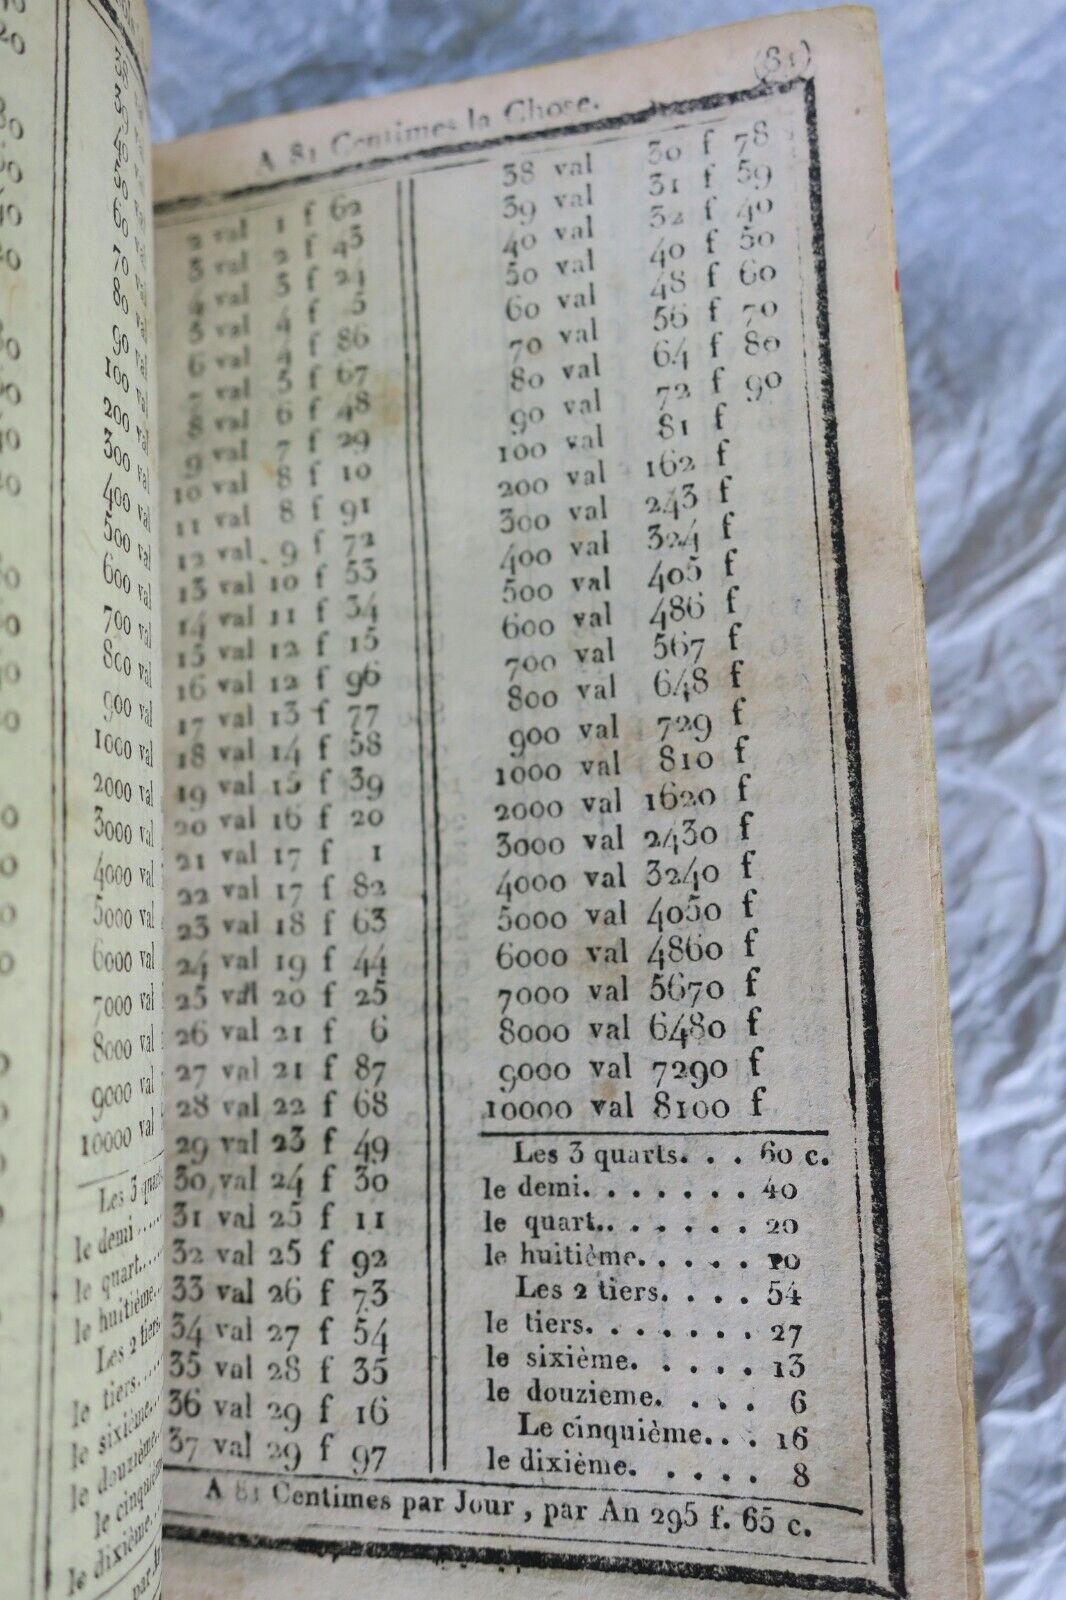 (81)
A 81 Centimes la Chose.
2 val 1 f 62
3 val 2 f 43
4 val 3 f 24
5 val 4 f 5
6 val 4 f 86
7 val 5 f 67
8 val 6 f 48
9 val 7 f 29
10 val 8 f 10
11 val 8 f 91
12 val 9 f 72
13 val 10 f 53
14 val 11 f 34
15 val 12 f 15
16 val 12 f 96
17 val 13 f 77
18 val 14 f 58
19 val 15 f 39
20 val 16 f 20
21 val 17 f 1
22 val 17 f 82
23 val 18 f 63
24 val 19 f 44
25 val 20 f 25
26 val 21 f 6
27 val 21 f 87
28 val 22 f 68
29 val 23 f 49
30 val 24 f 30
31 val 25 f 11
32 val 25 f 92
33 val 26 f 73
34 val 27 f 54
35 val 28 f 35
36 val 29 f 16
37 val 29 f 97
38 val 30 f 78
39 val 31 f 59
40 val 32 f 40
50 val 40 f 50
60 val 48 f 60
70 val 56 f 70
80 val 64 f 80
90 val 72 f 90
100 val 81 f
200 val 162 f
300 val 243 f
400 val 324 f
500 val 405 f
600 val 486 f
700 val 567 f
800 val 648 f
900 val 729 f
1000 val 810 f
2000 val 1620 f
3000 val 2430 f
4000 val 3240 f
5000 val 4050 f
6000 val 4860 f
7000 val 5670 f
8000 val 6480 f
9000 val 7290 f
10000 val 8100 f
Les 3 quarts. . . 60 c.
le demi. . . . . . . 40
le quart. . . . . . . 20
le huitième. . . . . 10
Les 2 tiers. . . . 54
le tiers. . . . . . . 27
le sixième. . . . . 13
le douzieme. . . . 6
Le cinquième. . . 16
le dixième. . . . . 8
A 81 Centimes par Jour, par An 295 f. 65 c.
60
70
80
90 val
100 val
200 val
300 val
400 val
500 val
600 val
700 val
800 val
900 val
1000 val
2000 val
3000 val
4000 val
5000 val
6000 val
7000 val
8000 val
9000 val
10000 val
Les 3 quarts
le demi
le quart
le huitième
Les 2 tiers
le tiers
le sixième
le douzième
le cinquième
le dixième